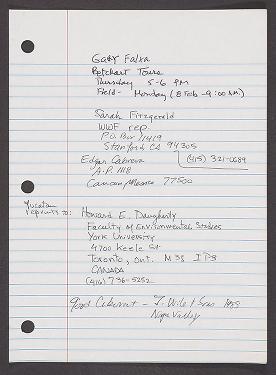 Gary Falxa
Petchart Tours
Thursday 5-6 PM
Field - Monday (8 Feb - 9:00 AM)
Sarah Fitzgerald
WWF rep.
P.O. Box 11419
Stanford CA 94305
(415) 321-0689
Edgar Cabrera
A.P. 1118
Cancun, Mexico 77500
Yucatan
reprints to: Howard E. Daugherty
Faculty of Environmental Studies
York University
4700 Keele St
Toronto, Ont. M3J 1P3
CANADA
(416) 736-5252
Good Cabernet - & Sons
Napa Valley